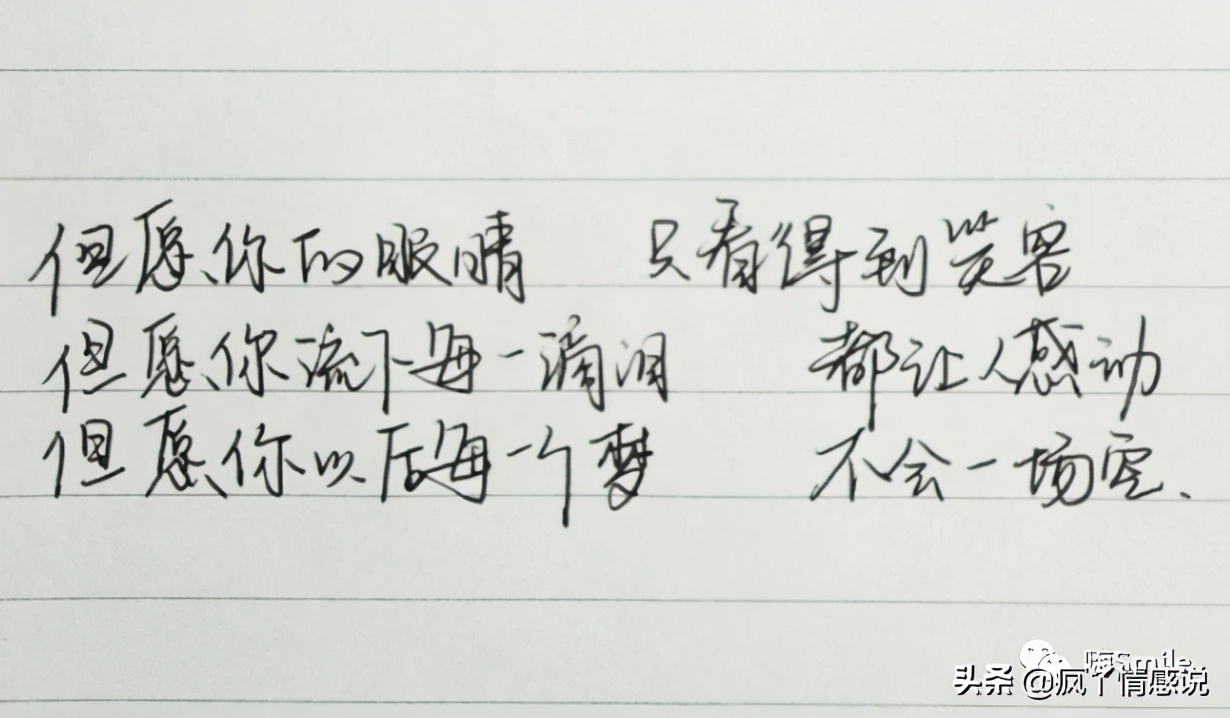 但愿你的眼睛 只看得到笑容
但愿你流下每一滴泪 都让人感动
但愿你以后每一个梦 不会一场空、
嗨Smile
头条 @疯丫情感说